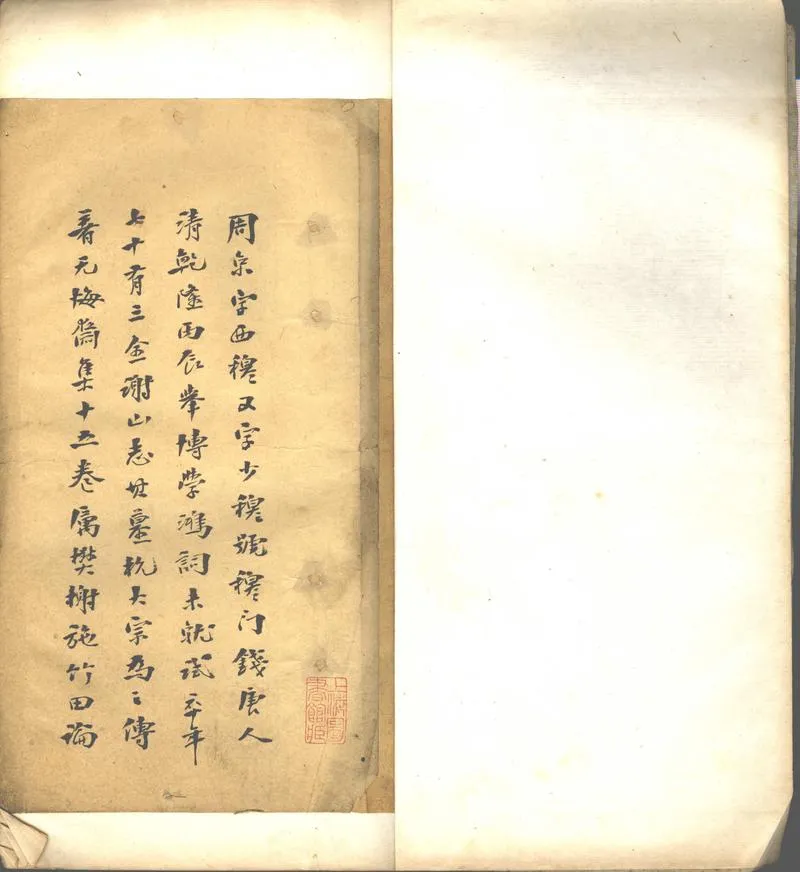 周京字西穆又字少穆號穆门錢唐人
清乾隆丙辰舉博學鴻詞未就試卒年
七十有三全谢山志其墓杭大宗為之傳
著无悔齋集十五卷厲樊榭施竹田論
上海圖書館藏